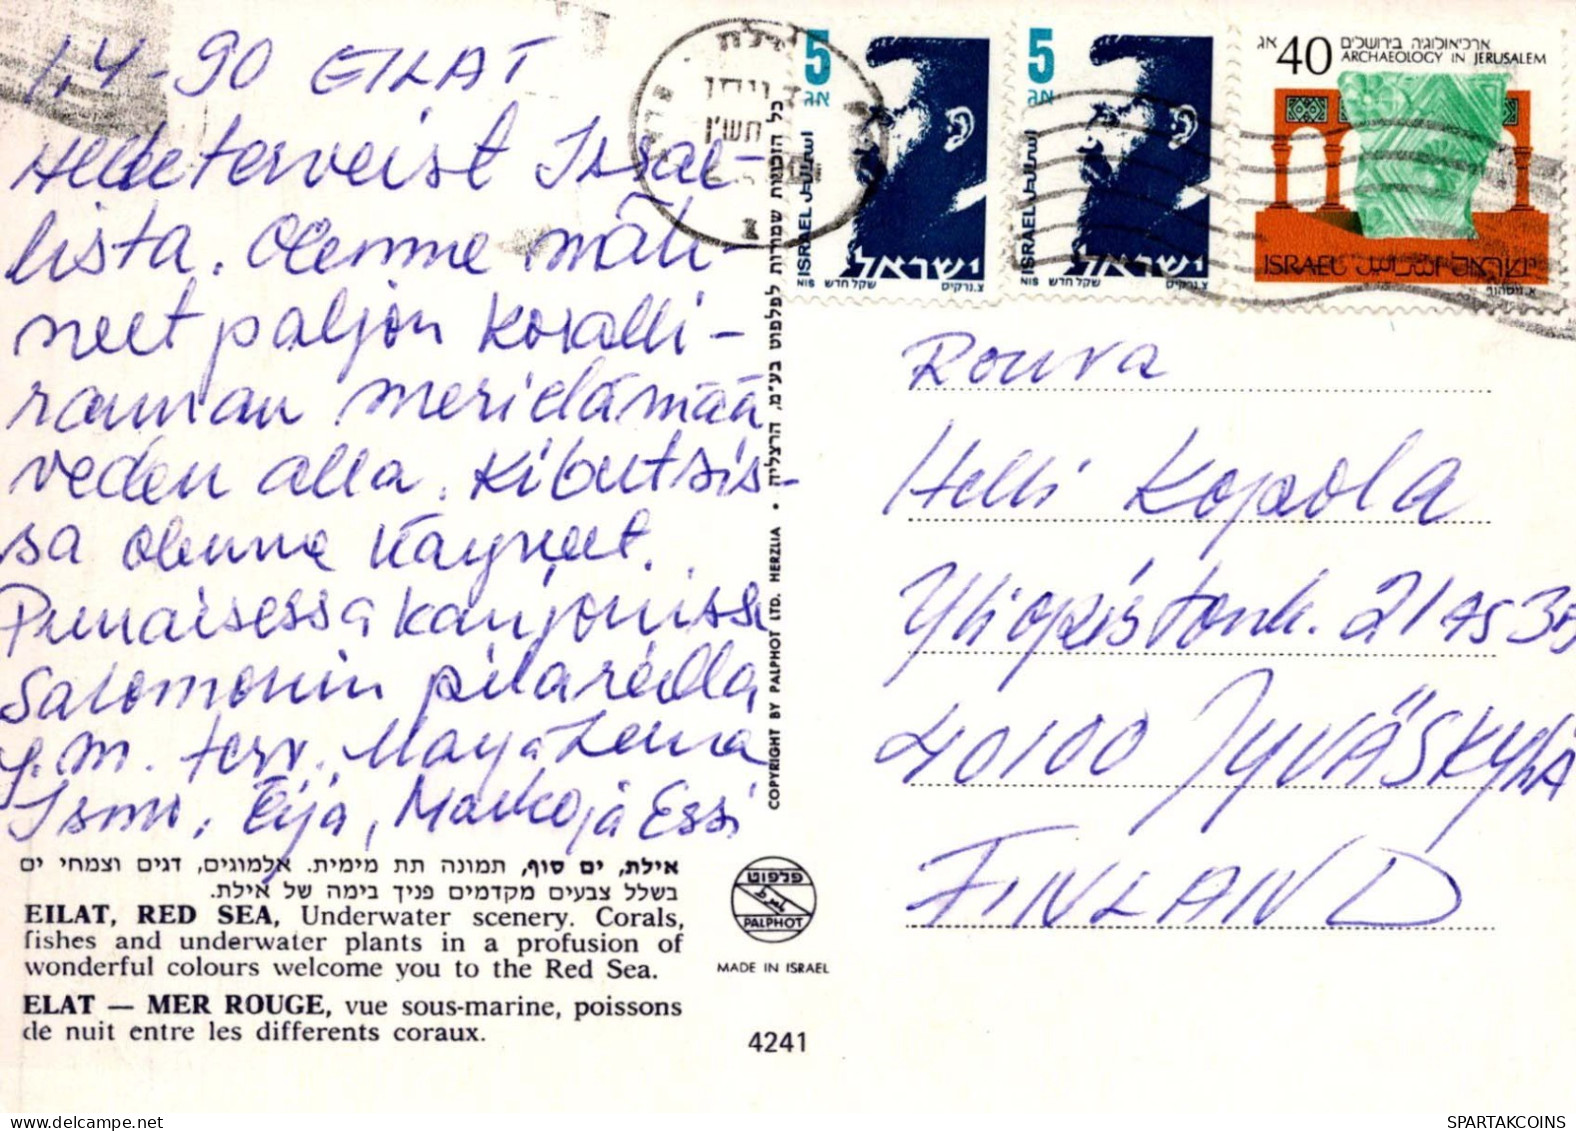 1.4-90 EILAT
Hedeterveist Israe-
lista. Olemme näh-
neet paljon koralli-
rannan merielämää
veden alla. Kibutsis-
sa olemme käyneet.
Punaisessa kanjonissa
Salomonin pilareilla
y.m. terv. Marja Leena
Ismo, Eija, Marko ja Essi
אילת, ים סוף, תמונה תת מימית. אלמוגים, דגים וצמחי ים
בשלל צבעים מקדמים פניך בימה של אילת.
EILAT, RED SEA, Underwater scenery. Corals,
fishes and underwater plants in a profusion of
wonderful colours welcome you to the Red Sea.
ELAT — MER ROUGE, vue sous-marine, poissons
de nuit entre les differents coraux.
COPYRIGHT BY PALPHOT LTD. HERZLIA • כל הזכויות שמורות לפלפוט בע"מ, הרצליה
פלפוט
PALPHOT
MADE IN ISRAEL
4241
אילת
תש"ן
5
אג
ISRAEL اسرائيل
ישראל
NIS שקל חדש צ. נרקיס
5
אג
ISRAEL اسرائيل
ישראל
NIS שקל חדש צ. נרקיס
40 אג
ארכיאולוגיה בירושלים
ARCHAEOLOGY IN JERUSALEM
ISRAEL اسرائيل ישראל
Rouva
Helli Kopola
Yliopistonk. 21 as 3B
40100 JYVÄSKYLÄ
FINLAND
SPARTAKCOINS